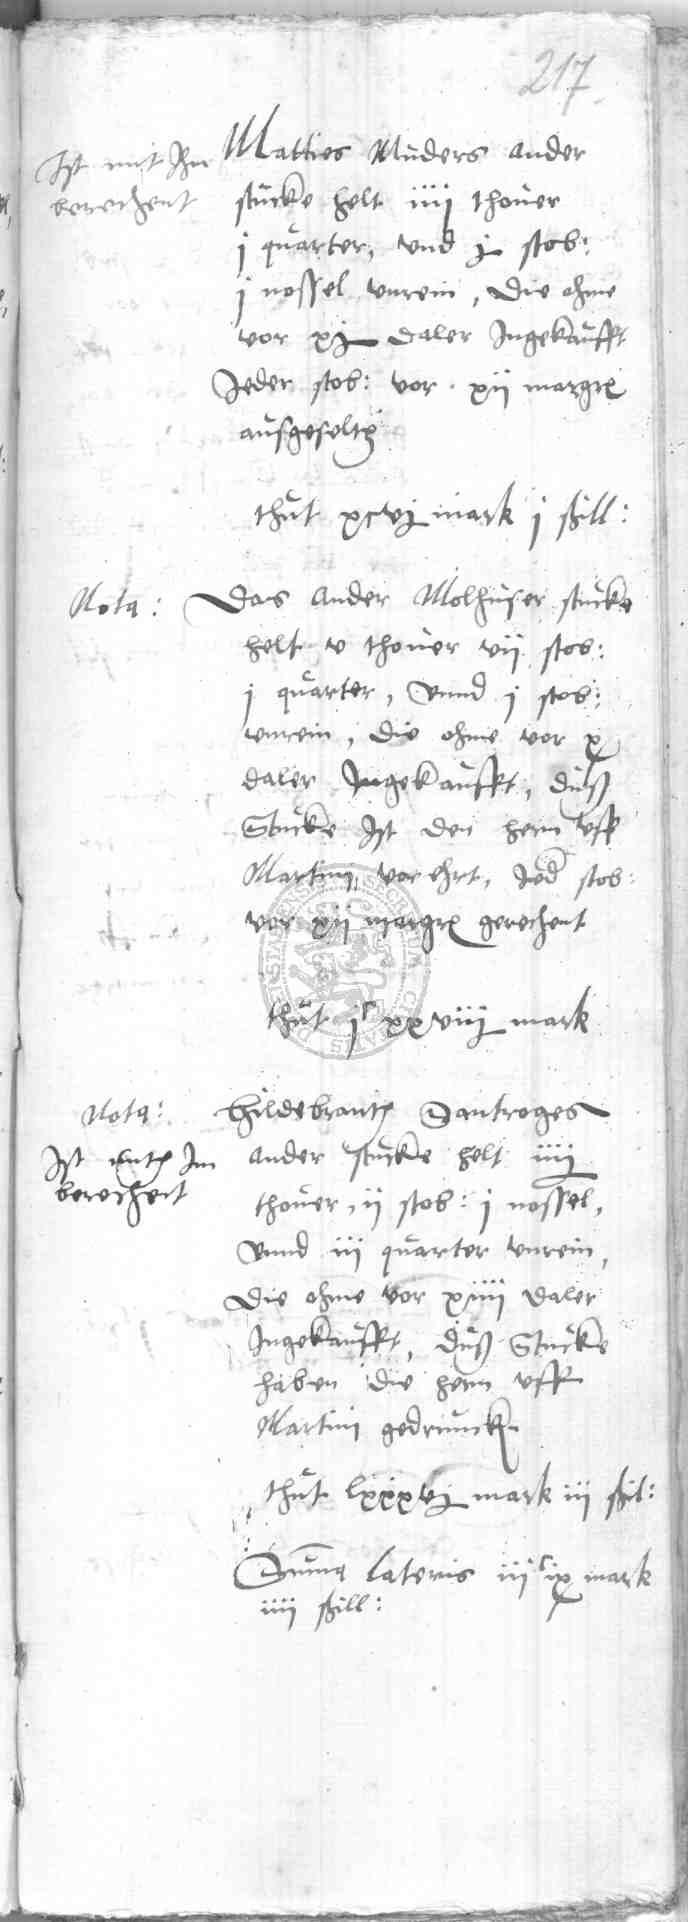 217
Ist mit Im
berechent
Matties Muders ander
stucke helt iiij thouer
j quarter, vnd j stob:
j nossel vnrein, die ohme
vor xj daler Ingekaufft
Jeder stob: vor xij margr
ausgeseltz
thut xcvj mark j ßill:
Nota: Das ander Molhuser stucke
helt v thouer vij stob:
j quarter, vnnd j stob:
vnrein, die ohme vor x
daler Ingekaufft, duß
Stucke Ist den hern vff
Martini vorehrt, Jed stob:
vor xij margr gerechent
thut jc xxviij mark
Nota:
Ist mit Im
berechent
Hildebrant Dantroges
ander stucke helt iiij
thouer, ij stob: j nossel,
vnnd iij quarter vnrein,
die ohme vor xiiij daler
Ingekaufft, duß Stucke
haben die hern vff
Martini gedruncken
thut lxxxvj mark iij ßil:
Suma lateris iijc ix mark
iiij ßill: